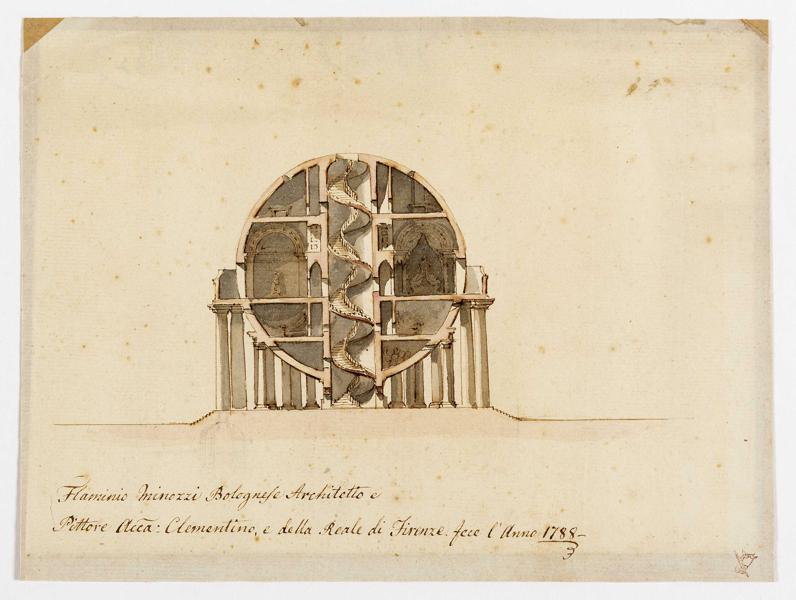 Flaminio Minozzi Bolognese Architetto e
Pittore Accã: Clementino, e della Reale di Firenze. fece l'Anno 1788-
3